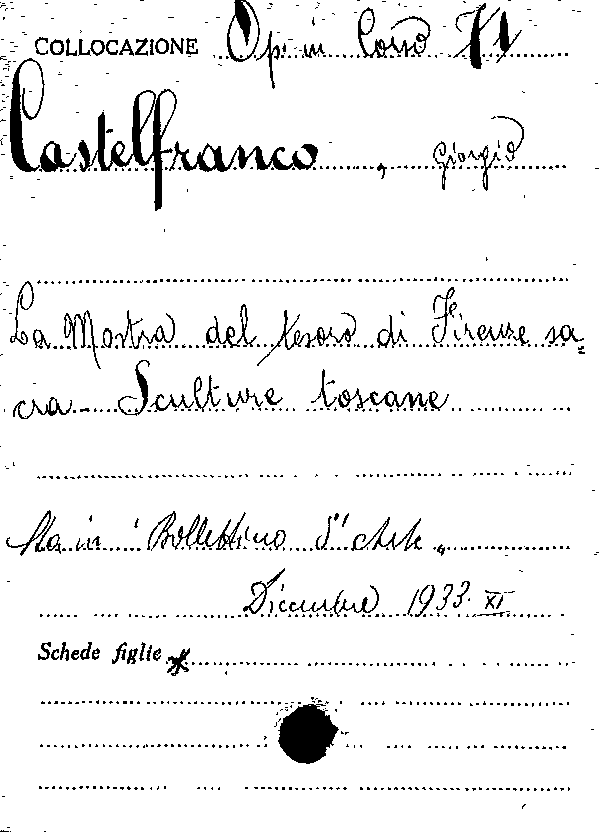 COLLOCAZIONE Op. in Corso 71
Castelfranco, Giorgio
La Mostra del tesoro di Firenze sa=
cra - Sculture toscane
Sta in "Bollettino d'arte"
Dicembre 1933. XI
Schede figlie *